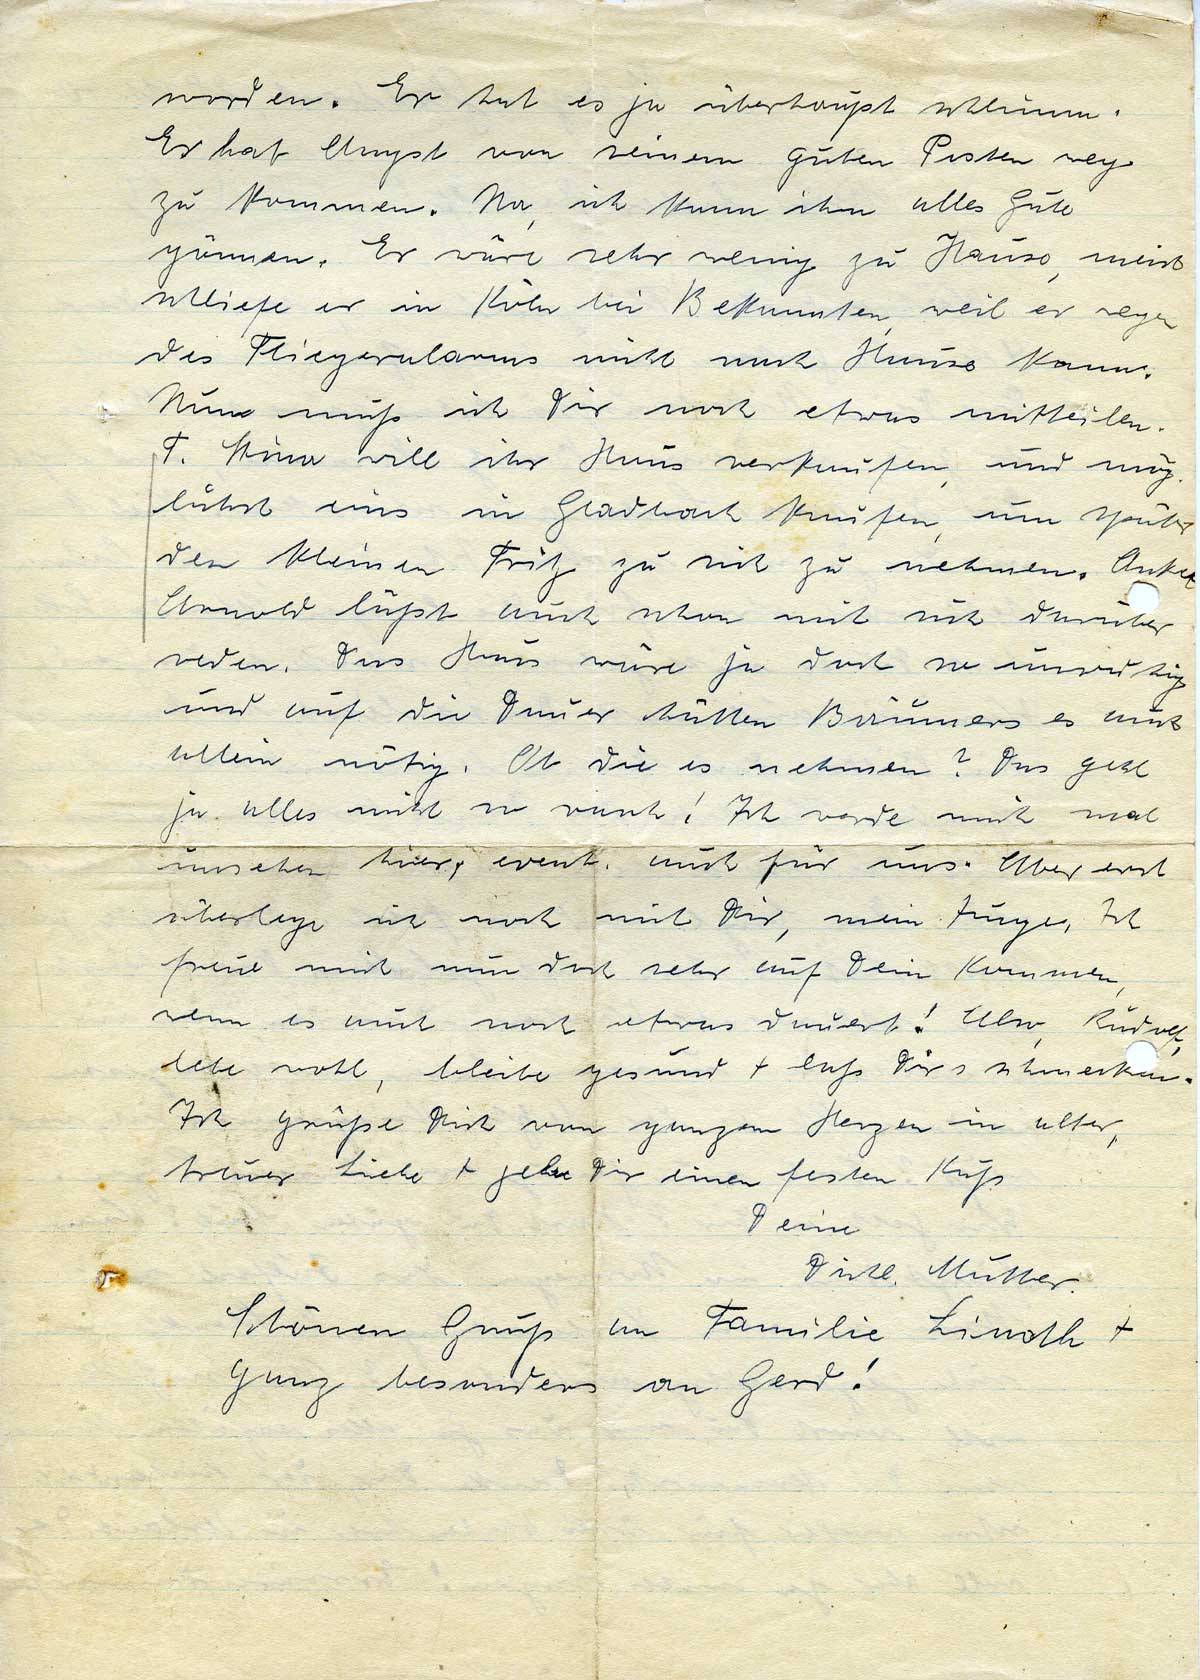 worden. Er hat es ja überhaupt schlimm.
Er hat Angst von seinem guten Posten weg
zu kommen. Na, ich kann ihm alles Gute
gönnen. Er wäre sehr wenig zu Hause, meist
schliefe er in Köln bei Bekannten, weil er wegen
des Fliegeralarms nicht nach Hause kann.
Nun muß ich Dir noch etwas mitteilen.
T. Mina will ihr Haus verkaufen, und mög-
lichst eins in Gladbach kaufen, um später
den kleinen Fritz zu sich zu nehmen. Onkel
Arnold läßt auch schon mit sich darüber
reden. Das Haus wäre ja doch so unruhig
und auf die Dauer hätten Bäumers es auch
allein nötig. Ob die es nehmen? Das geht
ja alles nicht so rasch! Ich werde mich mal
umsehen hier, event. auch für uns. Aber erst
überlege ich noch mit Dir, mein Junge. Ich
freue mich nun doch sehr auf Dein Kommen,
wenn es auch noch etwas dauert! Also, Rudolf,
lebe wohl, bleibe gesund + laß Dir's schmecken.
Ich grüße Dich von ganzem Herzen in alter,
treuer Liebe + gebe Dir einen festen Kuß
Deine
Dichl. Mutter.
Schönen Gruß an Familie +
ganz besonders an Gerd!